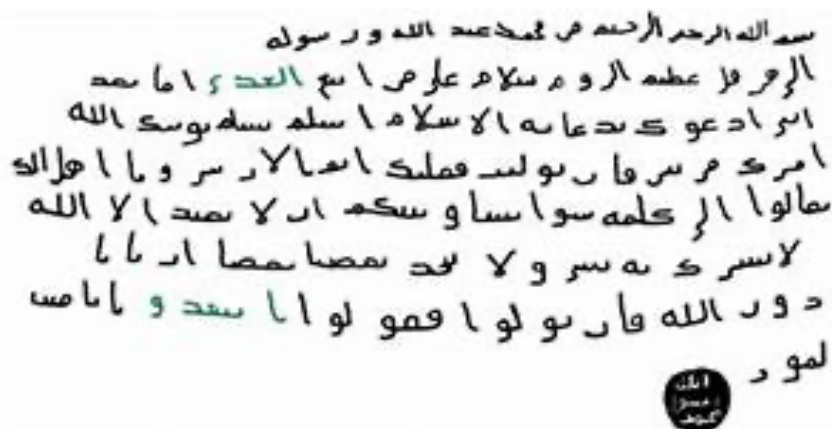 بسم الله الرحمن الرحيم من محمد عبد الله ورسوله
الى هرقل عظيم الروم سلام على من اتبع الهدى اما بعد
انى ادعوك بدعايه الاسلام اسلم تسلم يوتك الله
اجرك مرتين فان توليت فعليك اثم الاريسين ويا اهل الك
تعالوا الى كلمه سوا بيننا وبينكم ان لا نعبد الا الله
لا نشرك به شى ولا يتخذ بعضنا بعضا اربابا
دون الله فان تولوا فقولوا اشهدوا بانا مس
لمون
الله
رسول
محمد